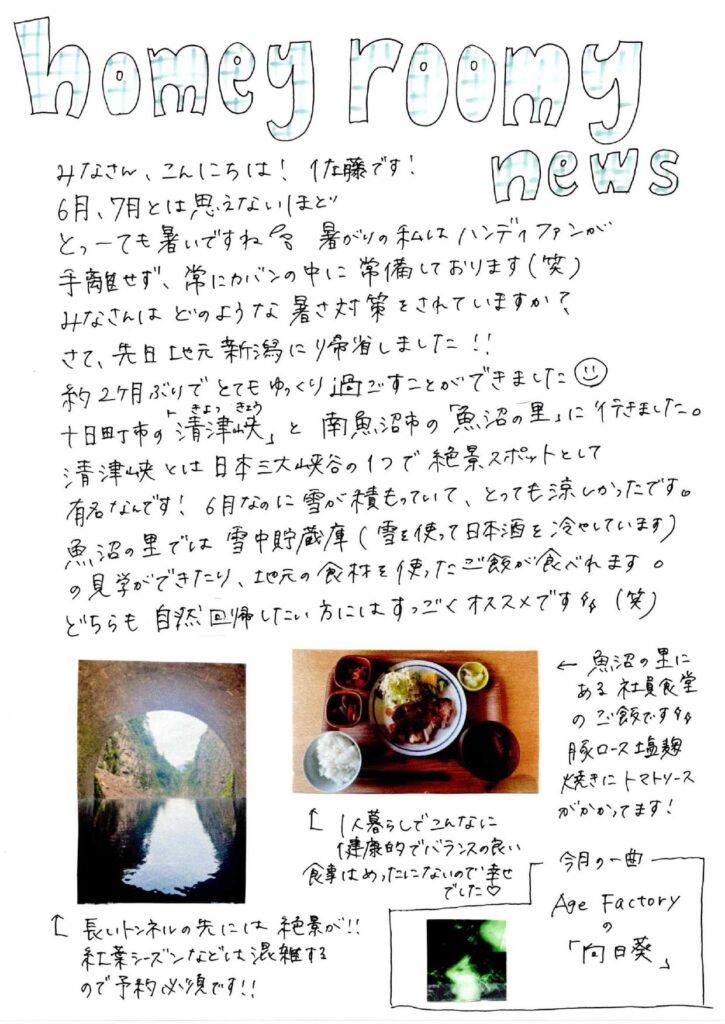 homey roomy
news
みなさん、こんにちは! 佐藤です!
6月、7月とは思えないほど
とっーても暑いですね 暑がりの私はハンディファンが
手離せず、常にカバンの中に常備しております(笑)
みなさんはどのような暑さ対策をされていますか?
さて、先日地元新潟に帰省しました!!
約2ヶ月ぶりでとてもゆっくり過ごすことができました
きよつ きょう
十日町市の「清津峡」と南魚沼市の「魚沼の里」に行きました。
清津峡とは日本三大峡谷の1つで絶景スポットとして
有名なんです! 6月なのに雪が積もっていて、とっても涼しかったです。
魚沼の里では雪中貯蔵庫(雪を使って日本酒を冷やしています)
の見学ができたり、地元の食材を使ったご飯が食べれます。
どちらも自然回帰したい方にはすっごくオススメです (笑)
← 魚沼の里に
ある社員食堂
のご飯です
豚ロース塩麹
焼きにトマトソース
がかかってます!
↑ 1人暮らしでこんなに
健康的でバランスの良い
食事はめったにないので幸せ
でした♡
↑ 長いトンネルの先には絶景が!!
紅葉シーズンなどは混雑する
ので予約必須です!!
今月の一曲
Age Factory
の
「向日葵」